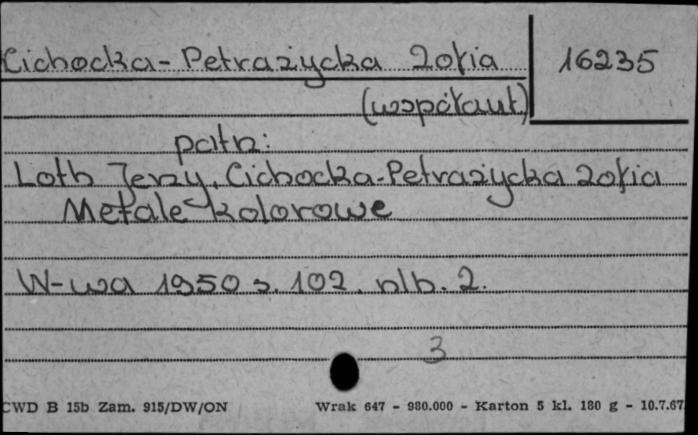 Cichocka-Petrażycka Zofia
16235
(współaut.)
patrz:
Loth Jerzy, Cichocka-Petrażycka Zofia
Metale kolorowe
W-wa 1950 s. 102. nlb. 2.
3
CWD B 15b Zam. 915/DW/ON
Wrak 647 - 980.000 - Karton 5 kl. 180 g - 10.7.67